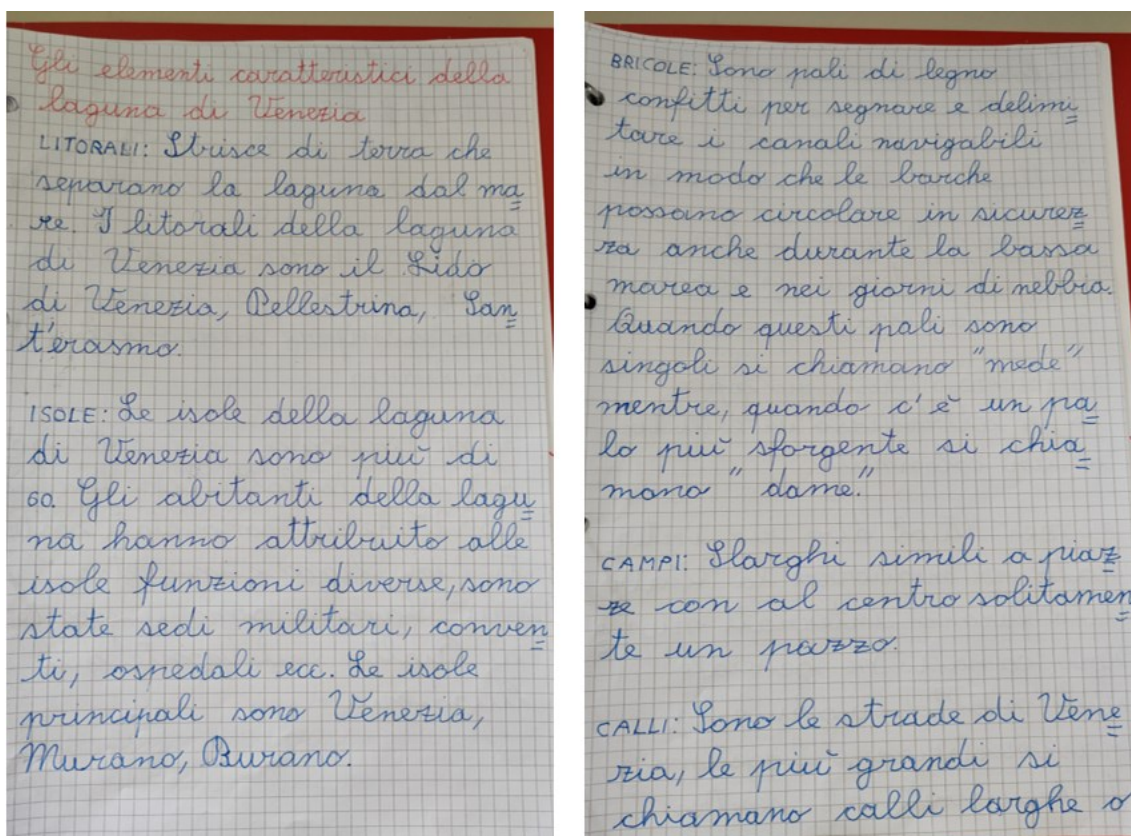 Gli elementi caratteristici della
laguna di Venezia
LITORALI: Strisce di terra che
separano la laguna dal ma=
re. I litorali della laguna
di Venezia sono il Lido
di Venezia, Pellestrina, San=
t'erasmo.
ISOLE: Le isole della laguna
di Venezia sono più di
60. Gli abitanti della lagu=
na hanno attribuito alle
isole funzioni diverse, sono
state sedi militari, conven=
ti, ospedali ecc. Le isole
principali sono Venezia,
Murano, Burano.
BRICOLE: Sono pali di legno
confitti per segnare e delimi=
tare i canali navigabili
in modo che le barche
possano circolare in sicurez=
za anche durante la bassa
marea e nei giorni di nebbia.
Quando questi pali sono
singoli si chiamano "mede"
mentre, quando c'è un pa=
lo più sporgente si chia=
mano "dame."
CAMPI: Slarghi simili a piaz=
ze con al centro solitamen=
te un pozzo.
CALLI: Sono le strade di Vene=
zia, le più grandi si
chiamano calli larghe o